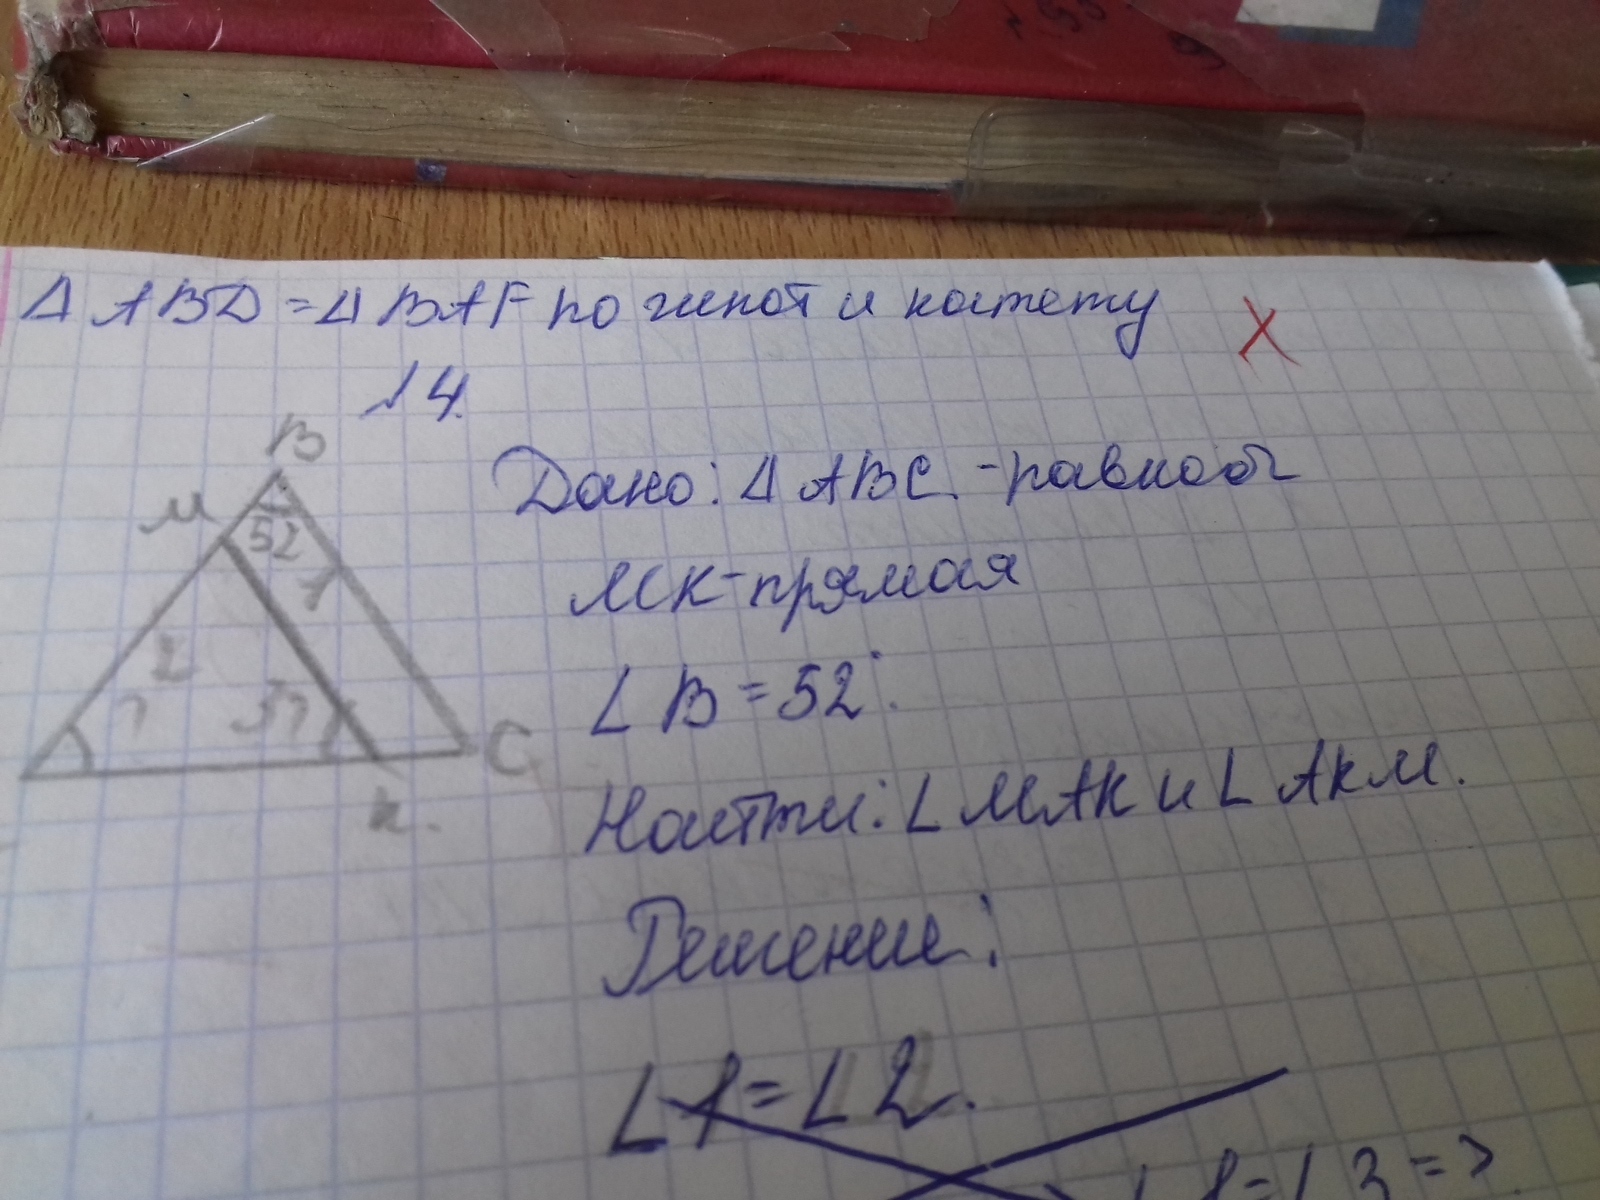 Δ ABD = Δ BAF по гипот и катету
X
№4.
B
M
52
1
2
?
C
К.
Дано: Δ ABC - равноб
МК - прямая
∠ B = 52°.
Найти: ∠ MAK и ∠ AKM.
Решение:
∠1 = ∠2.